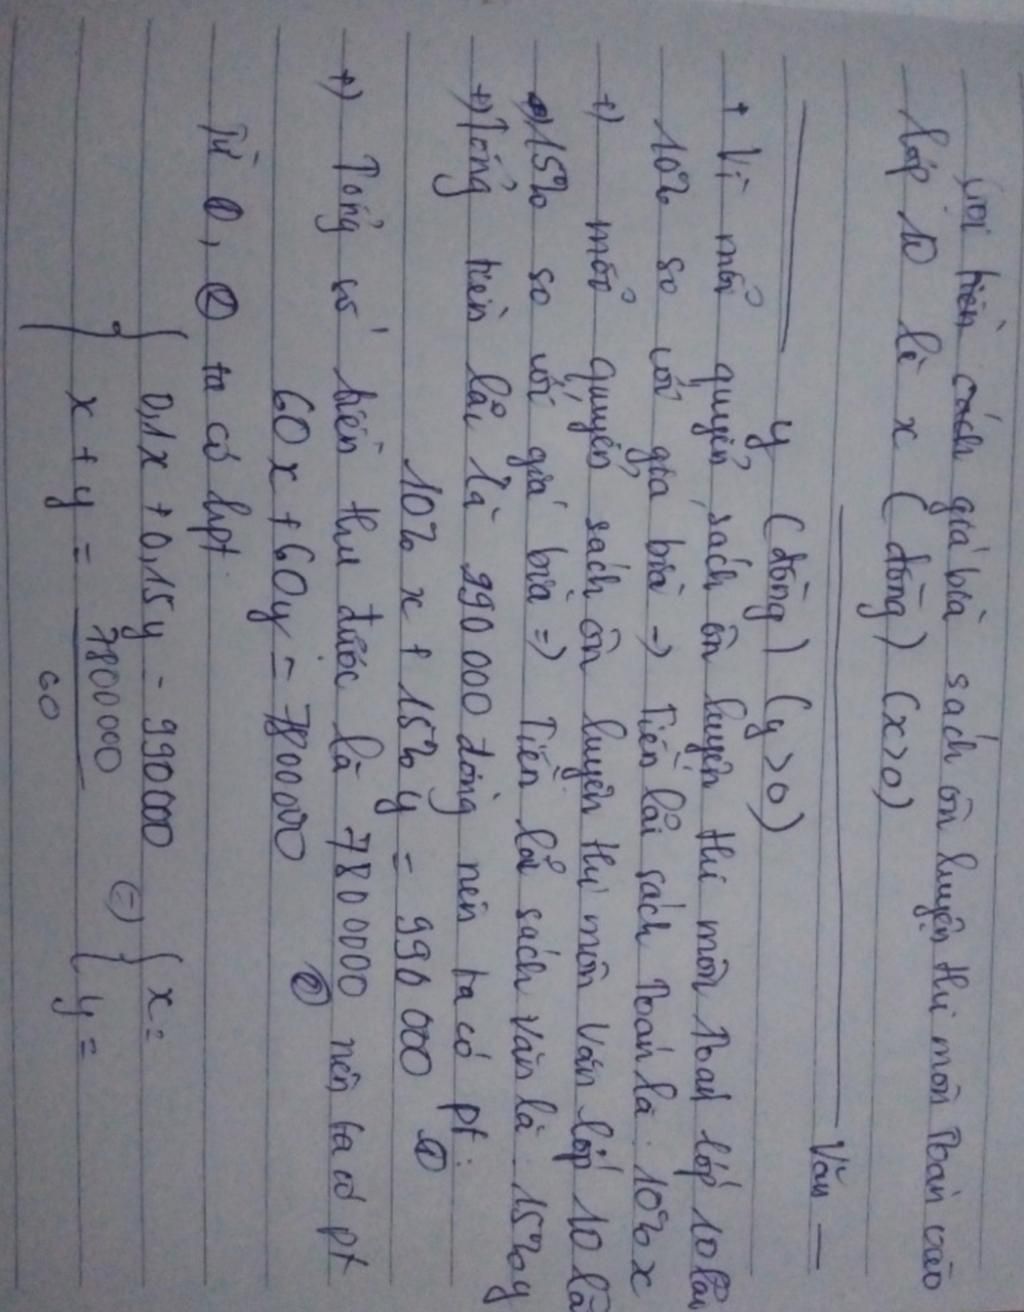 Gọi tiền cách giá bìa sách ôn luyện thi môn Toán vào
lớp 10 là x (đồng) (x>0)
Văn —
y (đồng) (y>0)
+ Vì mỗi quyển sách ôn luyện thi môn Toán lớp 10 lãi
10% so với giá bìa → Tiền lãi sách Toán là: 10% x
+) mỗi quyển sách ôn luyện thi môn Văn lớp 10 là
15% so với giá bìa => Tiền lãi sách Văn là: 15% y
+) Tổng tiền lãi là 990 000 đồng nên ta có pt:
10% x + 15% y = 990 000 ①
+) Tổng số tiền thu được là 7800000 nên ta có pt
60x + 60y = 7800000 ②
Từ ①, ② ta có hpt:
{ 0,1x + 0,15y = 990000 { x =
{ x + y = 7800000 <=> { y =
60